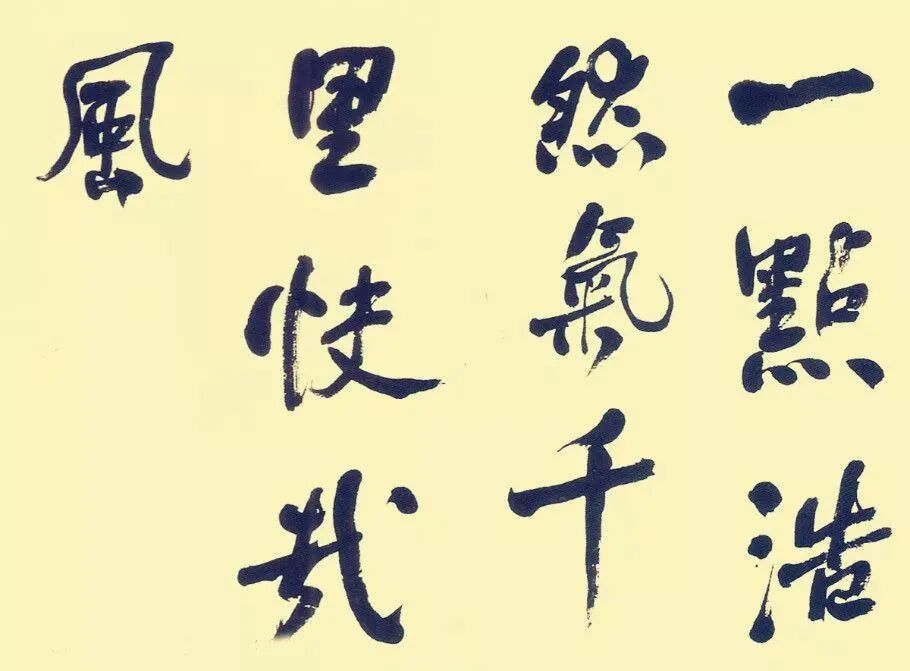 一點浩
然氣千
里快哉
風